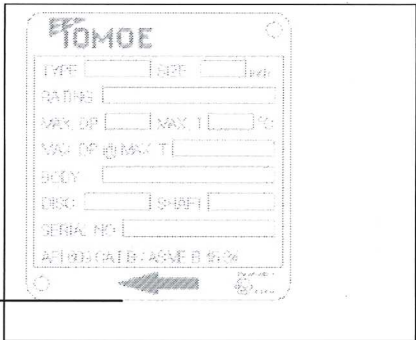 TOMOE
TYPE SIZE mm
RATING
MAX DP MAX T °C
MAX DP @ MAX T
BODY
DISC SHAFT
SERIAL NO
API 609 CAT B / ASME B 16.34